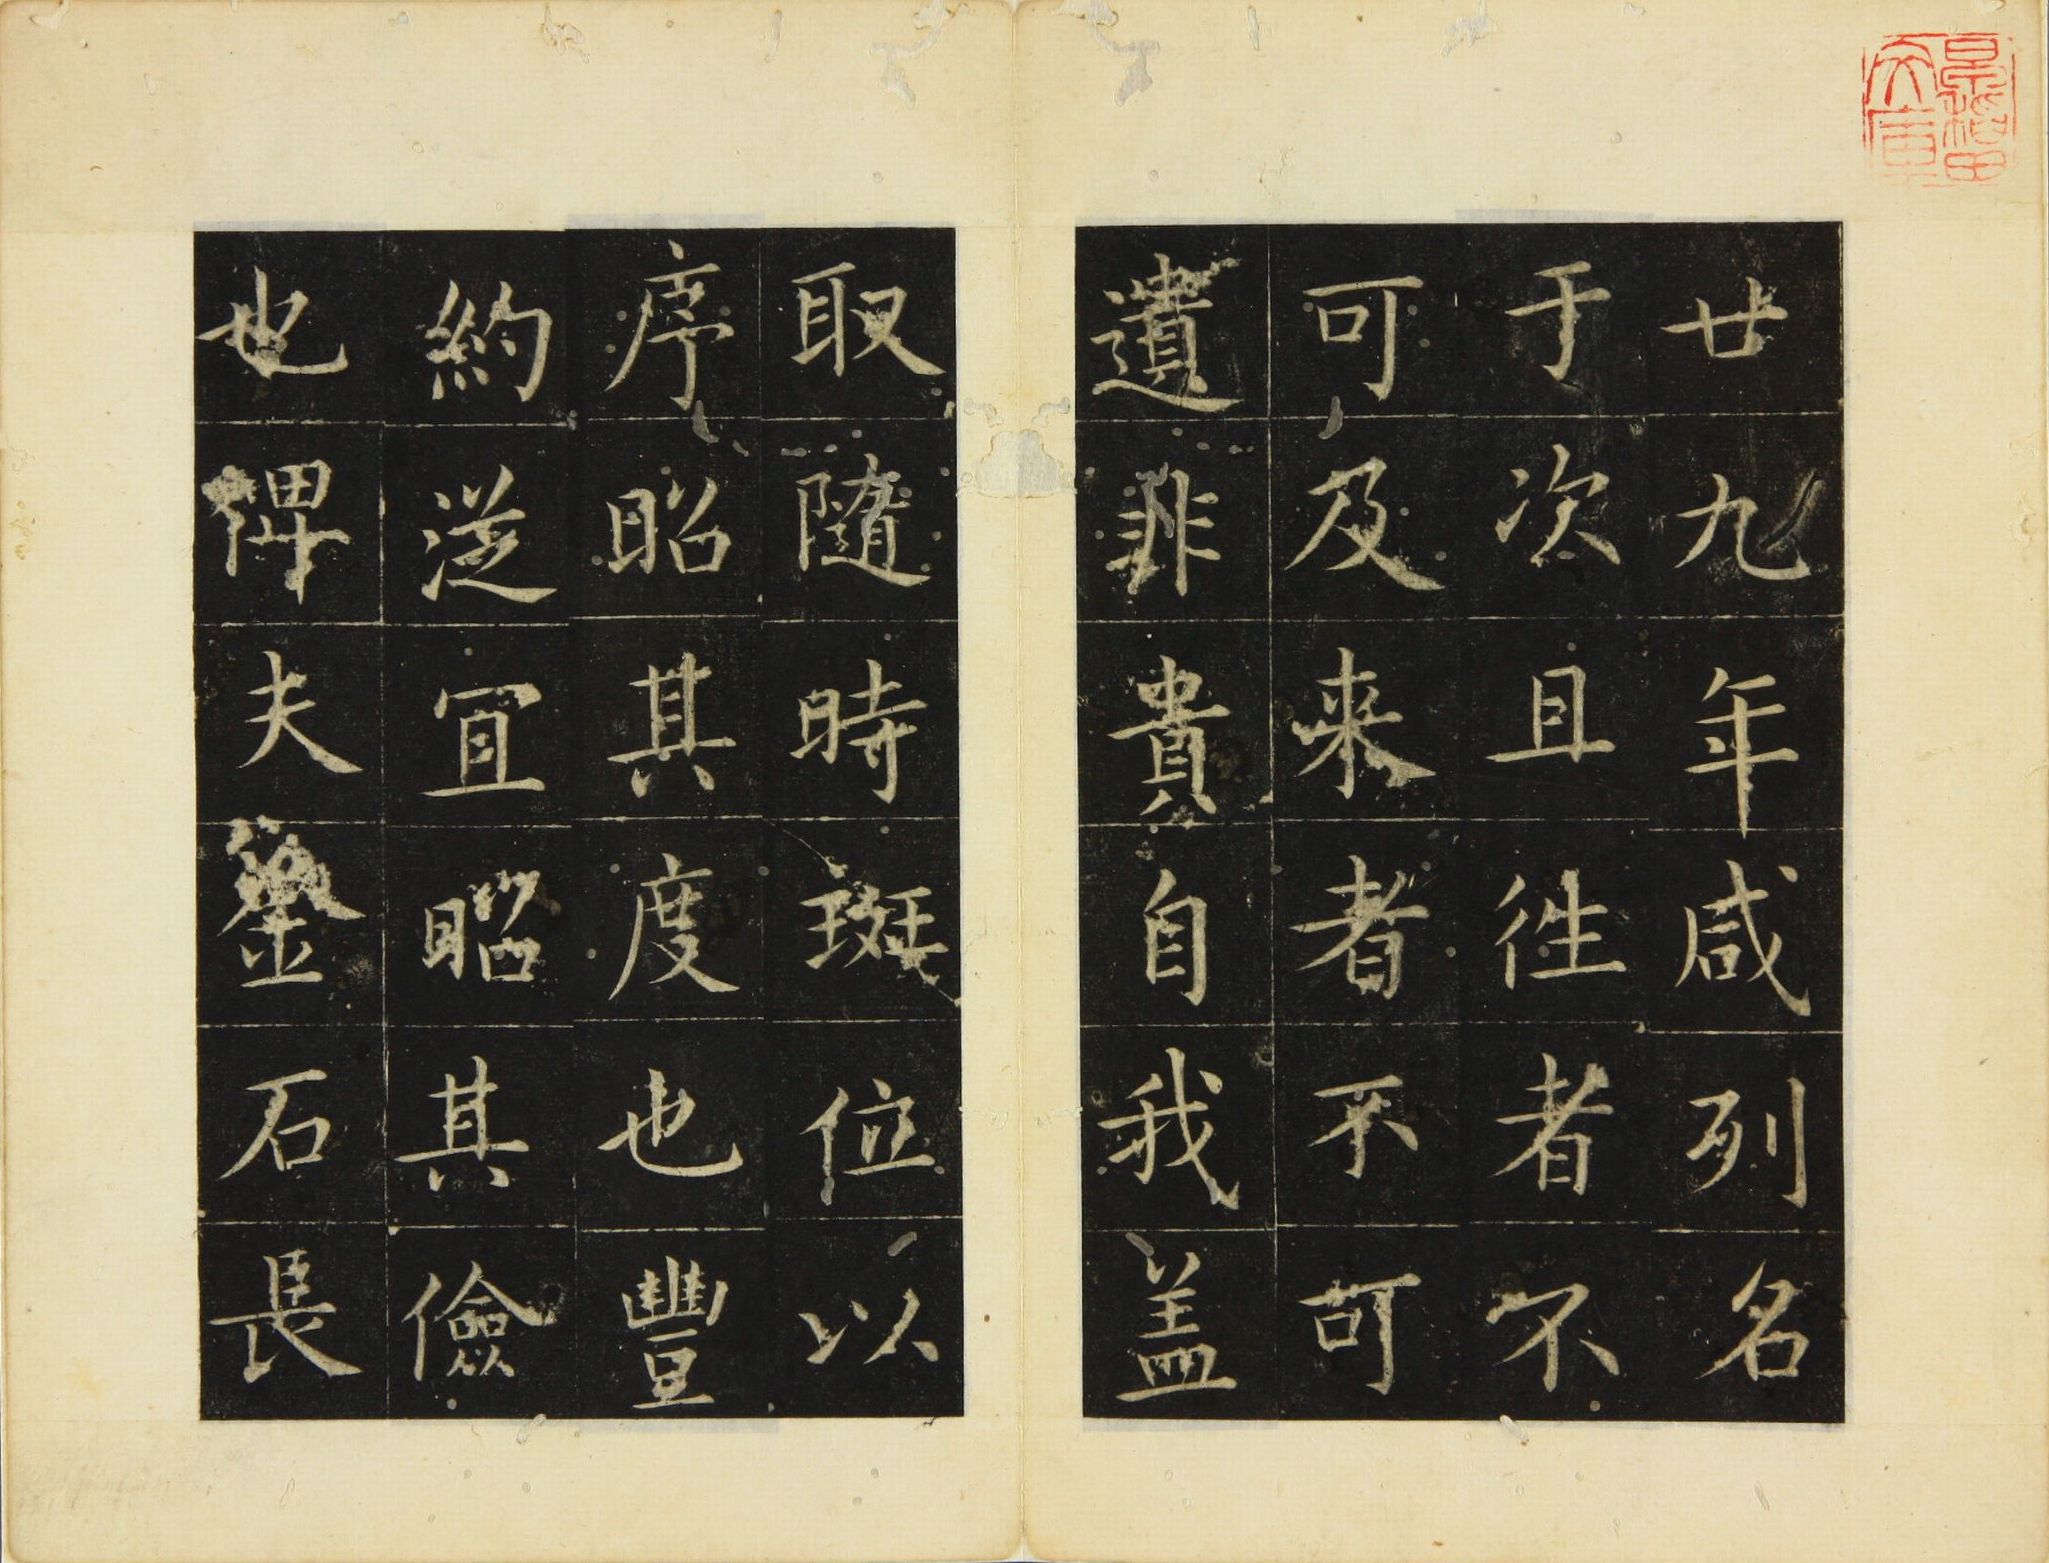 廿九年咸列名
于次且徃者不
可及来者不可
遺非貴自我盖
取随時班位以
序昭其度也豐
約従冝昭其儉
也俾夫鐅石長